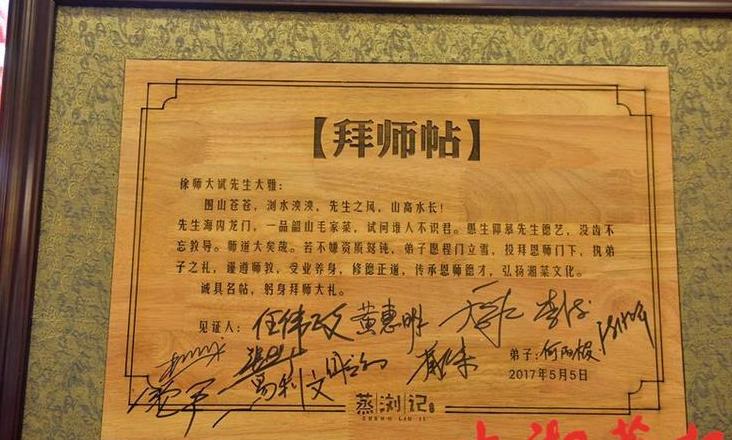 【拜师帖】
徐师大斌先生大雅：
围山苍苍，浏水泱泱，先生之风，山高水长！
先生海内龙门，一品韶山毛家菜，试问谁人不识君。愚生仰慕先生德艺，没齿不
忘教导。师道大矣哉。若不嫌资质驽钝，弟子愿程门立雪，投拜恩师门下，执弟
子之礼，谨遵师教，受业养身，修德正道，传承恩师德才，弘扬湘菜文化。
诚具名帖，躬身拜师大礼。
见证人：任伟政 黄惠明
易利文
弟子：何阳根
2017年5月5日
蒸浏记
ZHENG LIU JI